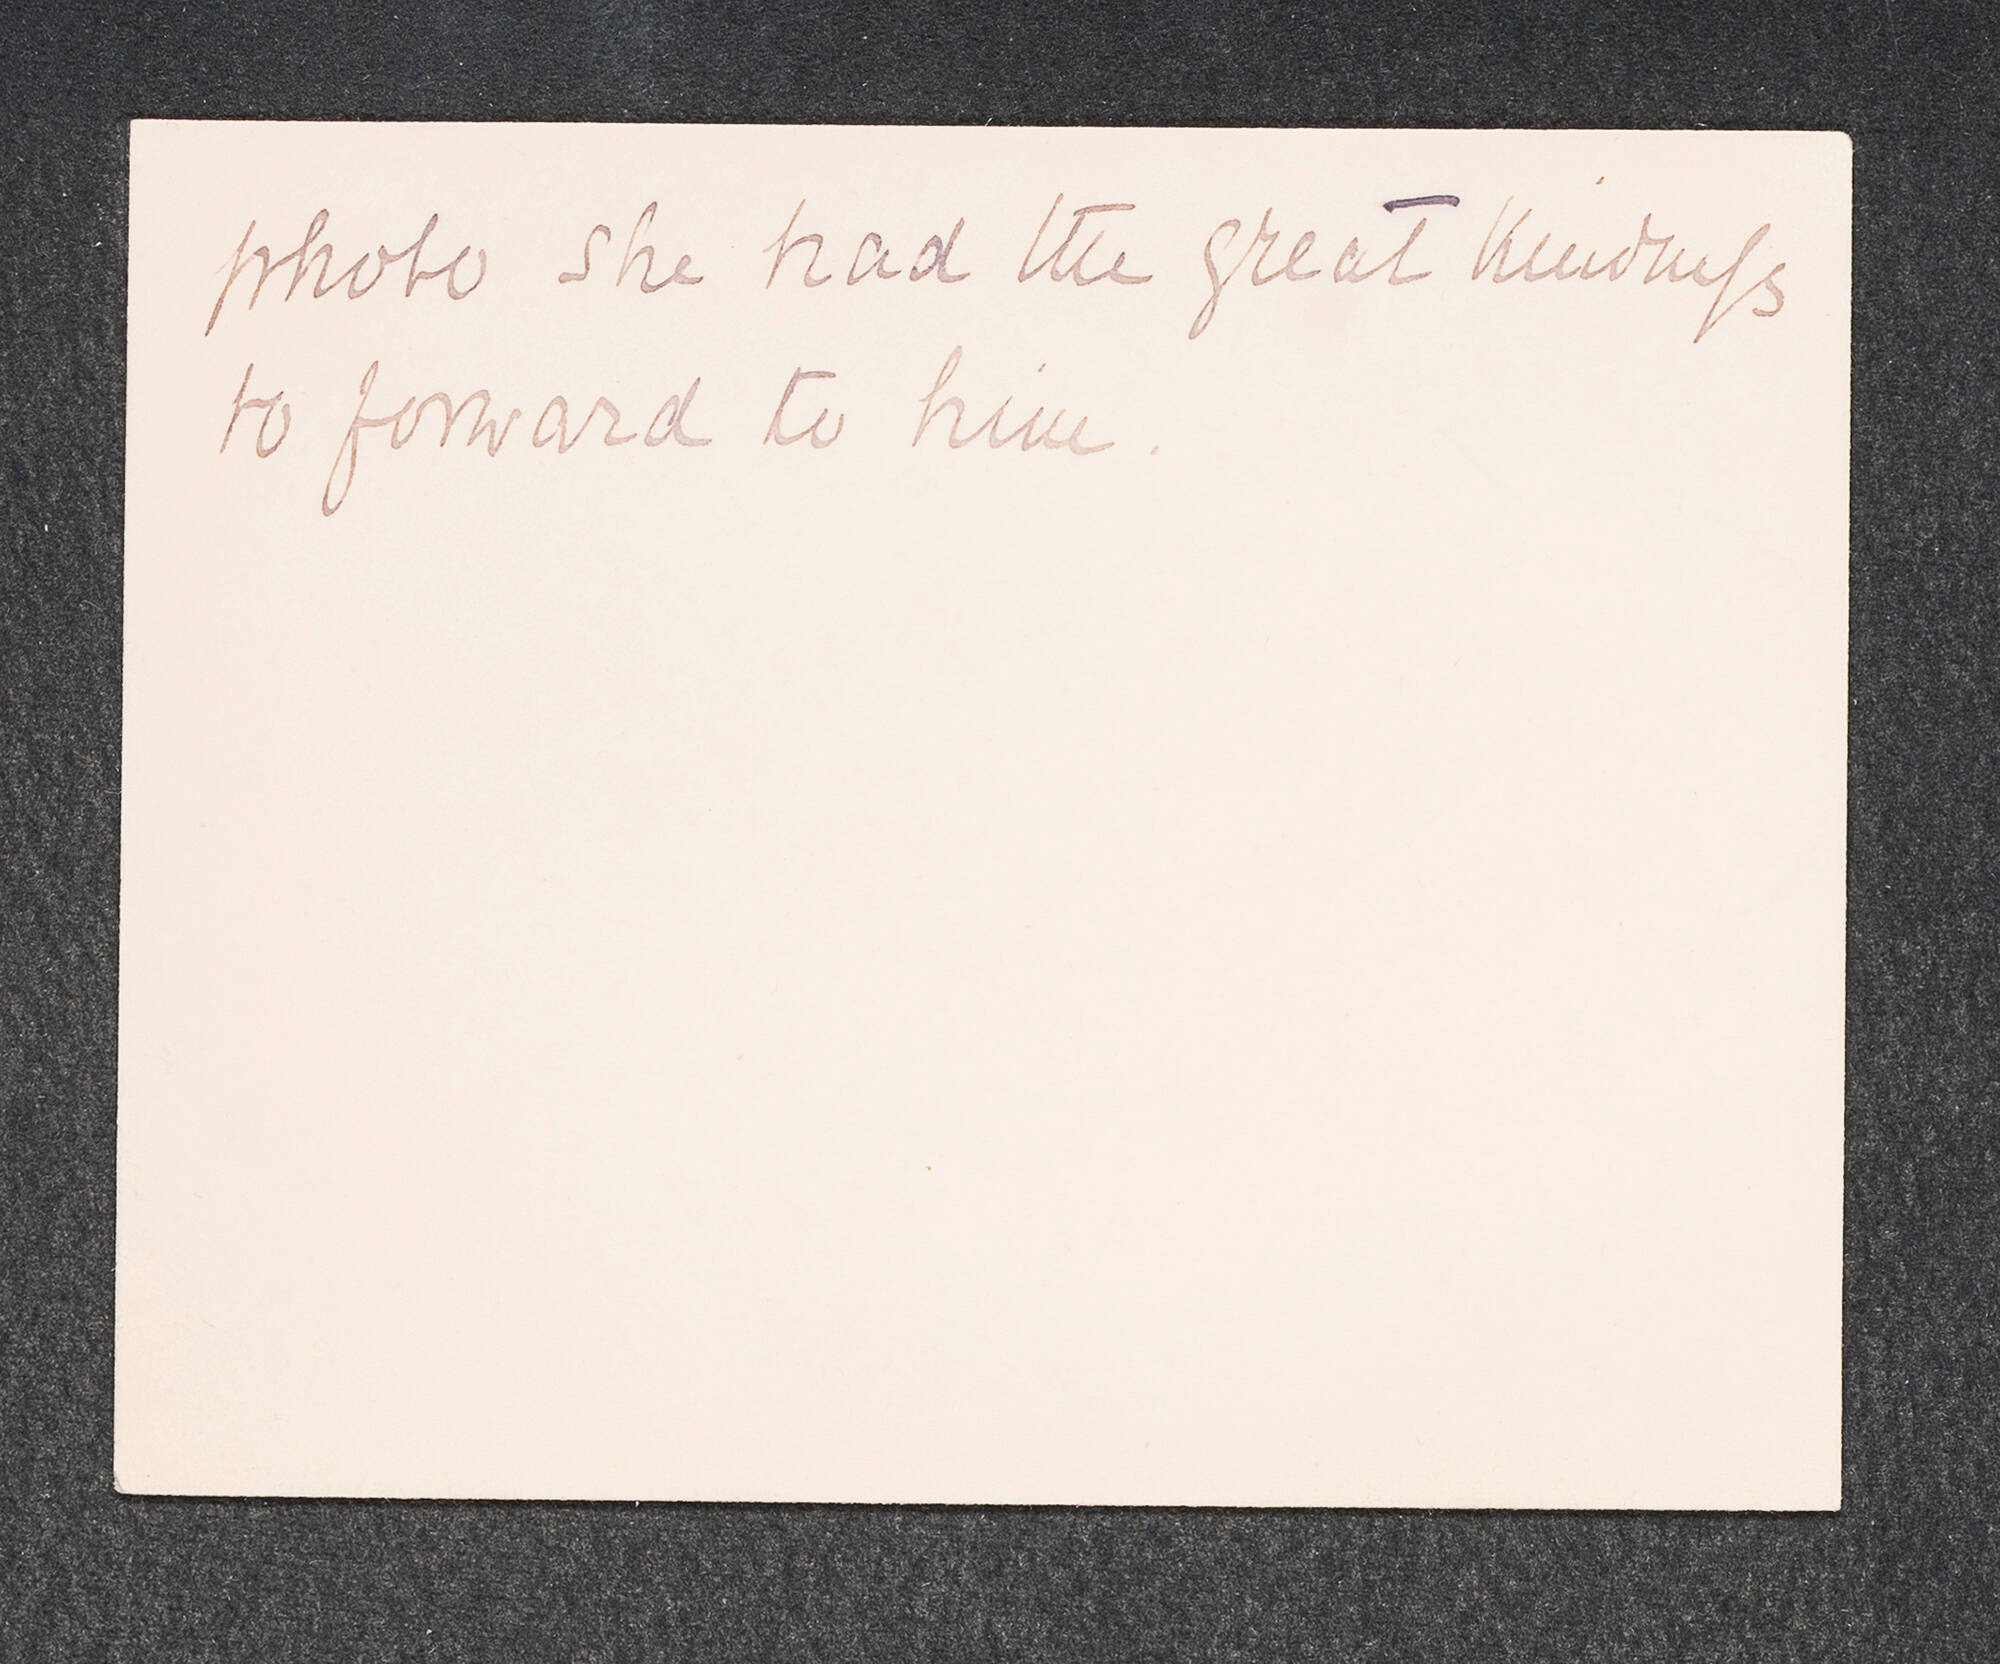 photo she had the great kindness
to forward to him.